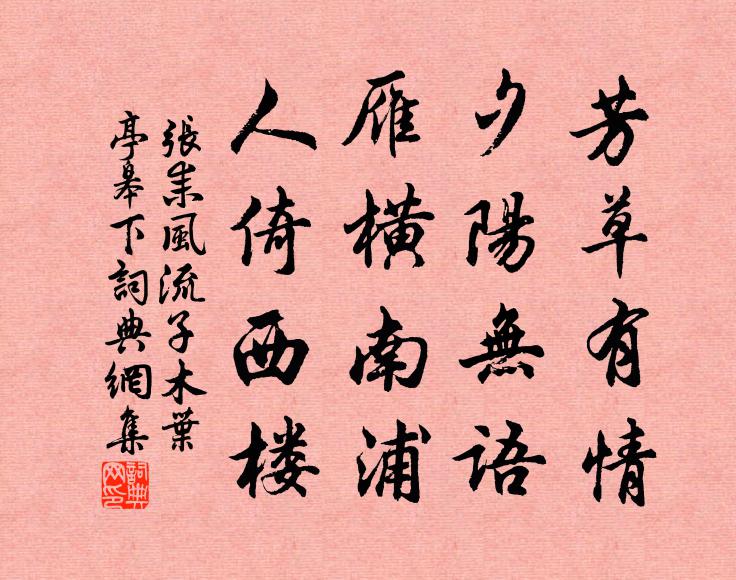 芳草有情
夕陽無語
雁橫南浦
人倚西楼
張耒風流子木葉
亭皋下詞典網集
詞典
网印